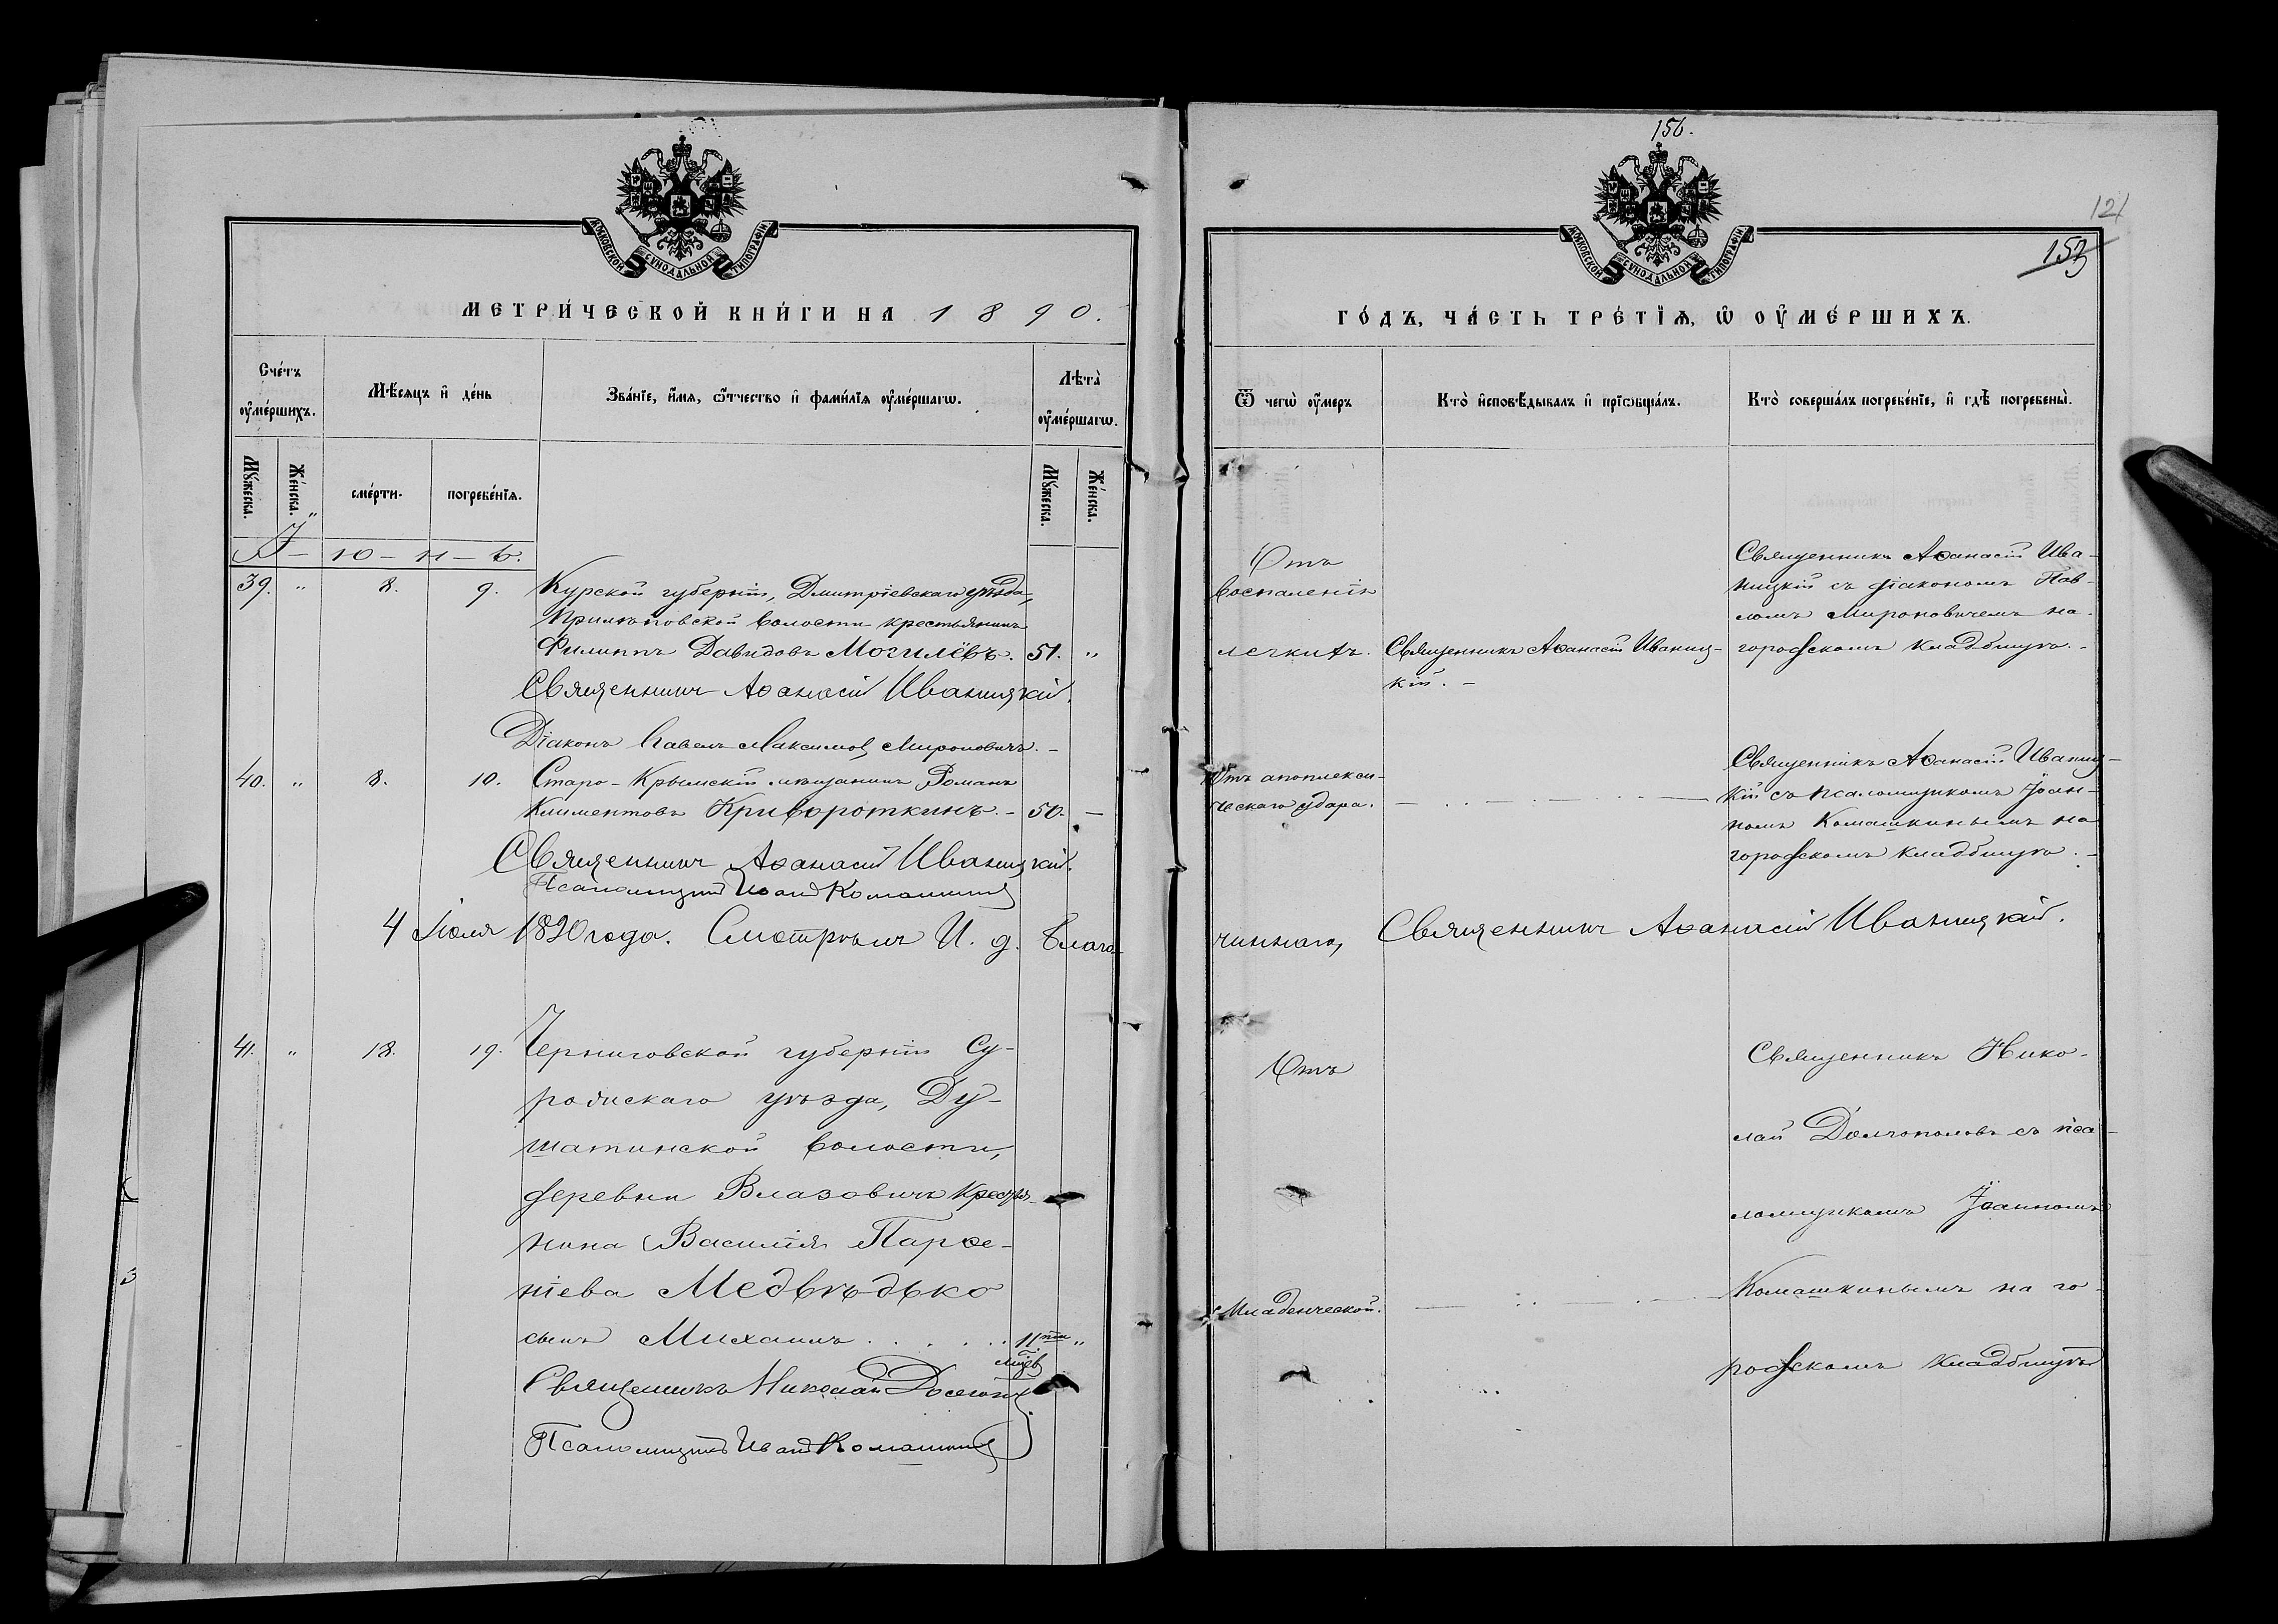 МОСКОВСКОЙ СѴНОДАЛЬНОЙ ТИПОГРАФІИ
МЕТРИ́ЧЕСКОЙ КНИ́ГИ НА 1890.
Сче́тъ ᲂу҆ме́ршихъ.
Мѣ́сяцъ и҆ де́нь
Зва́нїе, и҆́мя, ѻ҆́тчество и҆ фами́лїя ᲂу҆ме́ршагѡ.
Лѣта̀ ᲂу҆ме́ршагѡ.
Мꙋ́жеска.
Же́нска.
сме́рти.
погребе́нїя.
Мꙋ́жеска.
Же́нска.
І - ю - н - ь.
39. " 8. 9. Курской губерніи, Дмитріевскаго уѣзда,
волости крестьянинъ
Филиппъ Давидовъ Могилёвъ. 51. "
Священникъ Аѳанасій Иваницкій.
Діаконъ Павелъ Максимовъ Мироновичъ. -
40. " 8. 10. Старо-Крымскій мѣщанинъ Романъ
Климентовъ Кривороткинъ. - 50. -
Священникъ Аѳанасій Иваницкій.
Псаломщикъ Иванъ Комашкинъ
4 Іюля 1890 года. Смотрѣлъ И. д. Благо-
41. " 18. 19. Черниговской губерніи Су-
ражскаго уѣзда, Ду-
шатинской волости,
деревни Влазовичъ кресть-
нина Василія Парѳе-
нтіева Медвѣдько
сынъ Михаилъ . . . . 11ти "
мцев
Священникъ Николай
Псаломщикъ Иванъ Комашкинъ
156.
121
153
МОСКОВСКОЙ СѴНОДАЛЬНОЙ ТИПОГРАФІИ
ГО́ДЪ, ЧА́СТЬ ТРЕ́ТІѦ, Ѡ ОУ҆МЕ́РШИХЪ.
Ѿ чегѡ̀ ᲂу҆́меръ
Кто̀ и҆сповѣ́дывалъ и҆ прїѡбща́лъ.
Кто̀ соверша́лъ погребе́нїе, и҆ гдѣ̀ погребены̀.
Отъ
воспаленія
легкихъ.
Священникъ Аѳанасій Иваниц-
кій. -
Священникъ Аѳанасій Ива-
ницкій съ діакономъ Пав-
ломъ Мироновичемъ на
городскомъ кладбищѣ. -
Отъ апоплекси-
ческаго удара.
Священникъ Аѳанасій Иваниц-
кій съ псаломщикомъ Іоан-
номъ Комашкинымъ на
городскомъ кладбищѣ. -
чиннаго, Священникъ Аѳанасій Иваницкій.
Отъ
Младенческой.
Священникъ Нико-
лай Долгополовъ съ пса-
ломщикомъ Іоанномъ
Комашкинымъ на го-
родскомъ кладбищѣ